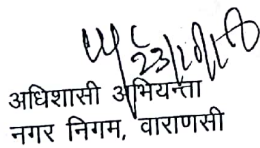 23/10/18
अधिशासी अभियन्ता
नगर निगम, वाराणसी